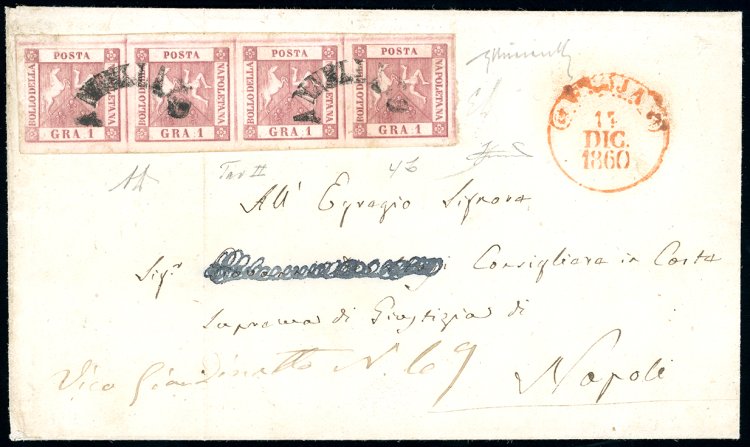 POSTA POSTA POSTA POSTA
BOLLO DELLA NAPOLETANA BOLLO DELLA NAPOLETANA BOLLO DELLA NAPOLETANA BOLLO DELLA NAPOLETANA
GRA 1 GRA 1 GRA 1 GRA 1
ANNULLATO ANNULLATO
DIC.
1860
Tav II
45
All' Egregio Signore
Sigr Consigliere in Corte
Suprema di Giustizia di
Vico N. 69 Napoli